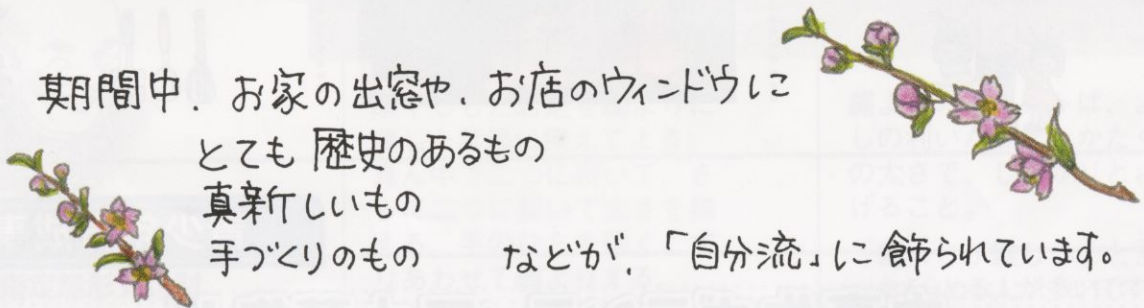 期間中、お家の出窓や、お店のウィンドウに
とても歴史のあるもの
真新しいもの
手づくりのもの　などが、「自分流」に飾られています。